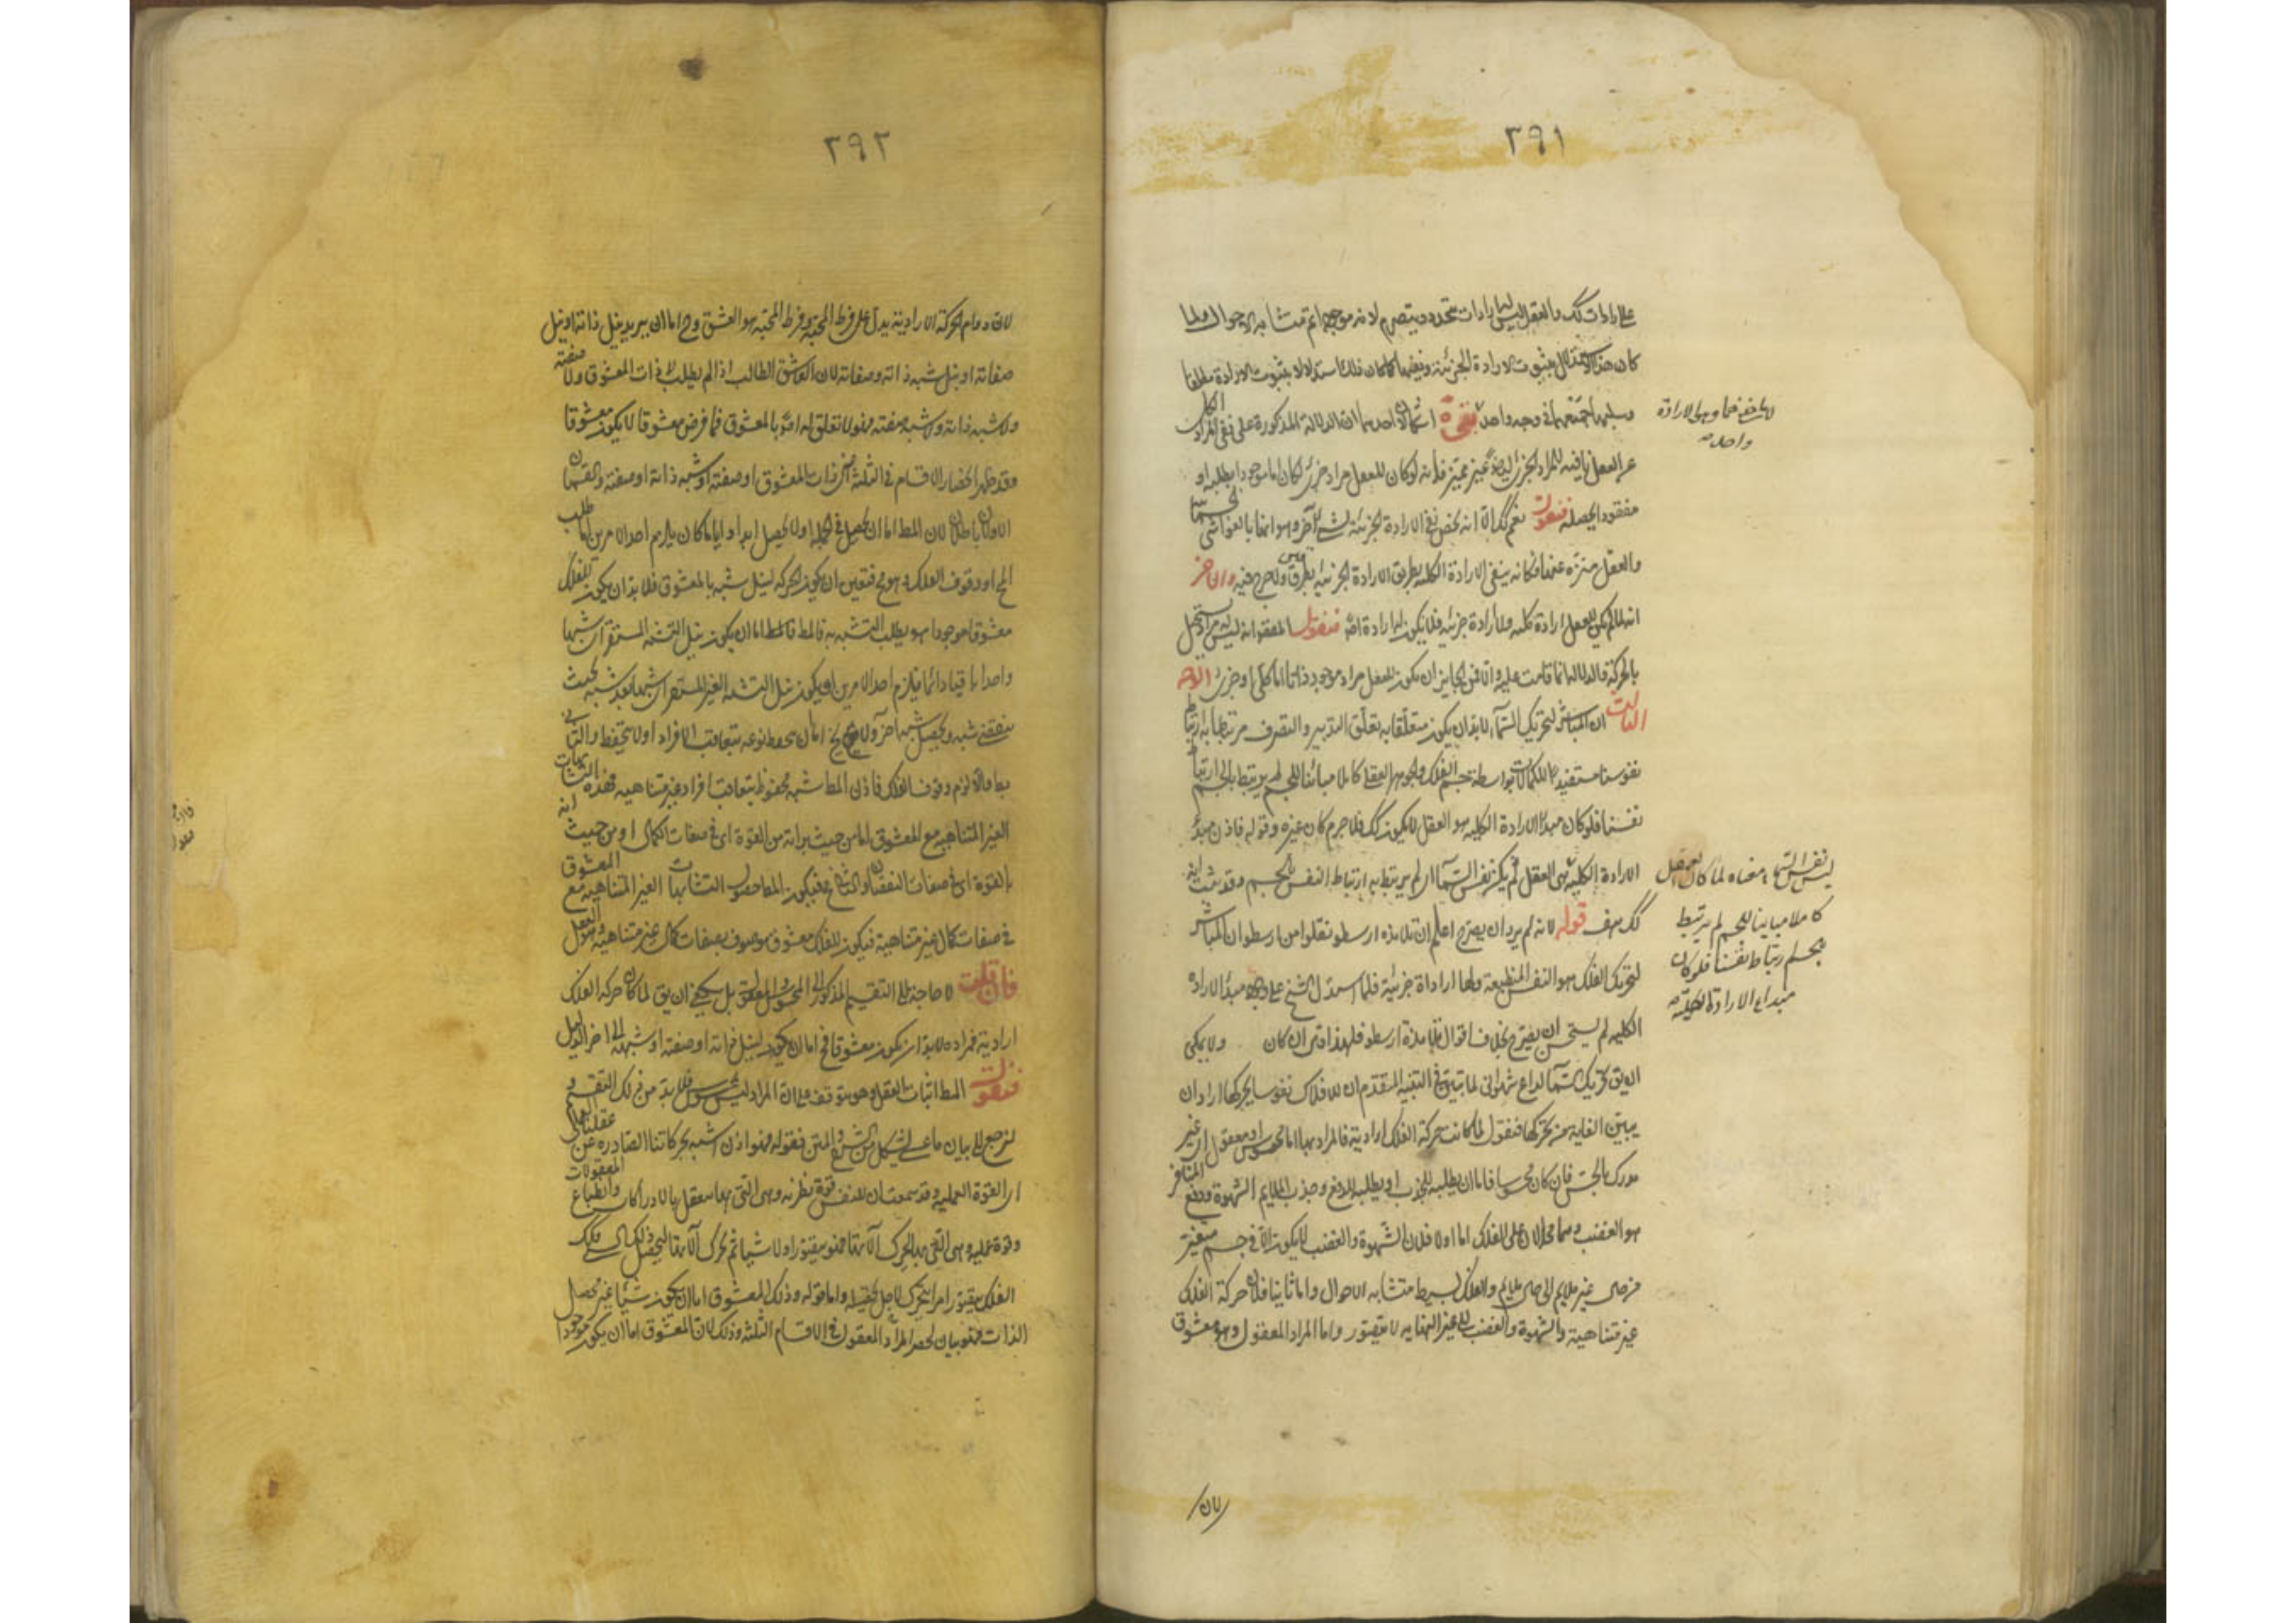 ٣٩١
على ارادات كك والعقل ليس له ارادات تتجدد وتتصرم لانه موجود تام متشابه الاحوال ولما
كان هذا الاستدلال بثبوت الارادة الجزئية ونفيها كما كان ذلك استدلالا بثبوت الارادة مطلقا
وسلبها جمعهما في وجه واحد احدهما ان الدلالة المذكورة على نفي المراد
لهاخذهما وهى الارادة
واحد منه
عن العقل نافية للمراد الجزئى ايضا غير مميز فانه لو كان للعقل مراد جزئى لكان اما موجودا يطلبه او
مفقودا يحصله فنقول نعم كذلك الا انه يختص نفي الارادة الجزئية بشىء آخر وهو انها بالغواشى
والعقل منزه عنها فكانه ينفى الارادة الكلية بطريق الارادة الجزئية بطرق ولا حرج فيه والاخر
انه لما لم يكن للعقل ارادة كلية ولا ارادة جزئية فلا يكون له ارادة اصلا فنقول المعنى انه ليس له مراد يحصل
بالحركة فالدلالة انما قامت عليه والا فمن الجايز ان يكون للعقل مراد موجود دائما اما كلى او جزئى الوجه
الثالث ان المباشر لتحريك السماء لابد ان يكون متعلقا به تعلق التدبير والتصرف مرتبطا به ارتباط
نفوسنا مستفيدا للكمالات بواسطة جسم الفلك والجوهر العقلى كاملا مبائنا للجسم لم يرتبط بالجسم ارتباط
نفسنا فلو كان مبدأ الارادة الكلية هو العقل لا يكون كك فلا جرم كان غيره وقوله فاذن مبدأ
الارادة الكلية هى العقل لم يكن نفس السماء اى لم يرتبط به ارتباط النفس بالجسم وقد ثبت انه
ليس نفس السماء معناه لما كان العقل
كاملا مباينا للجسم لم يرتبط
بجسم ارتباط نفسنا فلو كان
مبداء الارادة الكلية منه
كك هف قوله لانه لم يرد ان يصرح اعلم ان تلامذه ارسطو نقلوا من ارسطو ان المباشر
لتحريك الفلك هو النفس المنطبعة ولها ارادة جزئية فلما استدل الشيخ على وجود مبدأ الارادة
الكلية لم يستحسن ان يصرح بخلاف اقوال تلامذة ارسطو فلهذا اتى ان كان ولا يمكن
ان يق تحريك السماء لداع شهوانى لما تبين فى التنبيه المتقدم ان للافلاك نفوسا يحركها اراد ان
يبين الغاية من تحركها فنقول لما كانت حركة الفلك ارادية فالمراد بها اما محسوس او معقول اى غير
مدرك بالحس فان كان محسوسا فاما ان يطلبه للجذب او يطلبه للدفع وجذب الملايم الشهوة ودفع المنافر
هو الغضب وهما محالان على الفلك اما اولا فلان الشهوة والغضب لا يكون الا فى جسم متغير
من حال غير ملايم الى حال ملايم والفلك بسيط متشابه الاحوال واما ثانيا فلان حركة الفلك
غير متناهية والشهوة والغضب الى غير النهايه لا يتصور واما المراد المعقول وهو معشوق
لان
٣٩٢
لان دوام الحركة الارادية يدل على فرط المحبة وفرط المحبة هو العشق وح اما ان يريد نيل ذاته او نيل
صفاته او نيل شبه ذاته وصفاته لان العاشق الطالب اذا لم يطلب لا ذات المعشوق ولا صفته
ولا شبه ذاته ولا شبه صفته فهو لا تعلق له اصلا بالمعشوق فما فرض معشوقا لا يكون معشوقا
وقد ظهر انحصار الاقسام فى الثلثة اعنى ذات المعشوق او صفته او شبه ذاته او صفته والقسمان
الاولان باطلان لان المط اما ان يحصل فى الجملة او لا يحصل ابدا وايا ما كان يلزم احد الامرين اما طلب
المح او وقوف الفلك وهو مح فتعين ان يكون الحركة لنيل شبه بالمعشوق فلا بد ان يكون للفلك
معشوق موجود هو يطلب التشبه به فالمط اما ان يكون نيل التشبه المستقر اى شبها
واحدا باقيا دائما فيلزم احد الامرين او يكون نيل التشبه الغير المستقر اى شبها بعد شبه بحيث
ينقضى شبه ويحصل شبه آخر ولا يخ اما ان يحفظ نوعه بتعاقب الافراد او لا يحتفظ والثانى
بط والا لزم وقوف الفلك فاذن المط شبه محفوظ بتعاقب افراد غير متناهية فهذه التشابهات
الغير المتناهية مع المعشوق اما من حيث براءته من القوة اى فى صفات الكمال او من حيث انه
بالقوة اى فى صفات النقصان والثانى مح فيكون المط حصول التشابهات الغير المتناهية مع المعشوق
فى صفات كمال غير متناهية فيكون للفلك معشوق موصوف بصفات كمال غير متناهية وهو العقل
فان قلت لا حاجة الى التقسيم المذكور الى المحسوس والمعقول بل يكفى ان يق لما كان حركة الفلك
ارادية فمراده لابد ان يكون معشوقا فح اما ان يكون لنيل ذاته او صفته او شبه الى اخر الدليل
فنقول المط اثبات العقل وهو يتوقف على ان المراد ليس بمحسوس فلا بد من ذلك التقسيم و
لنرجع الى بيان ما عسى يشكل من الشرح والمتن فقوله فهو اذن اشبه بحركاتنا الصادرة عن عقلنا العملى
اى القوة العملية وقد سمعت ان للنفس قوة نظرية وهى التى بها تتعقل بالادراكات وانطباع المعقولات
وقوة عملية وهى التى مبدأ لتحرك الآلات فهو يتصور اولا شيئا ثم يحرك آلاتنا ليحصل ذلك الشىء فكك
الفلك يتصور امرا يتحرك لاجل تحصيله واما قوله وذلك المعشوق اما ان يكون شيئا غير محصل
الذات فهو بيان لحصر المراد المعقول فى الاقسام الثلثة وذلك لان المعشوق اما ان يكون موجودا